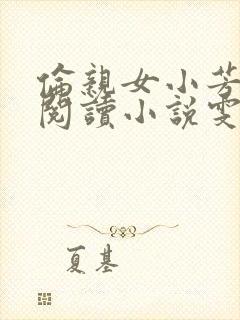 倫親女小芳
閱讀小說雯
夏基